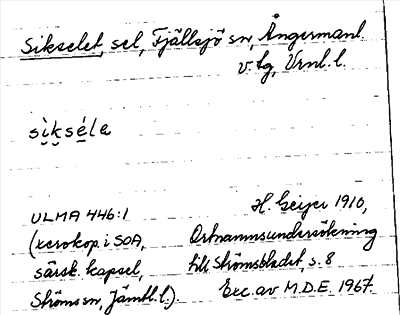 Sikselet, sel, Fjällsjö sn, Ångermanl.
v. tg, Vrnl. l.
sìkséle
ULMA 446:1 H. Geijer 1910,
(xerokop. i SOA, Ortnamnsundersökning
särsk. kapsel, till Strömsbladet, s. 8
Ströms sn, Jämtl. l.). Exc. av M.D.E. 1967.